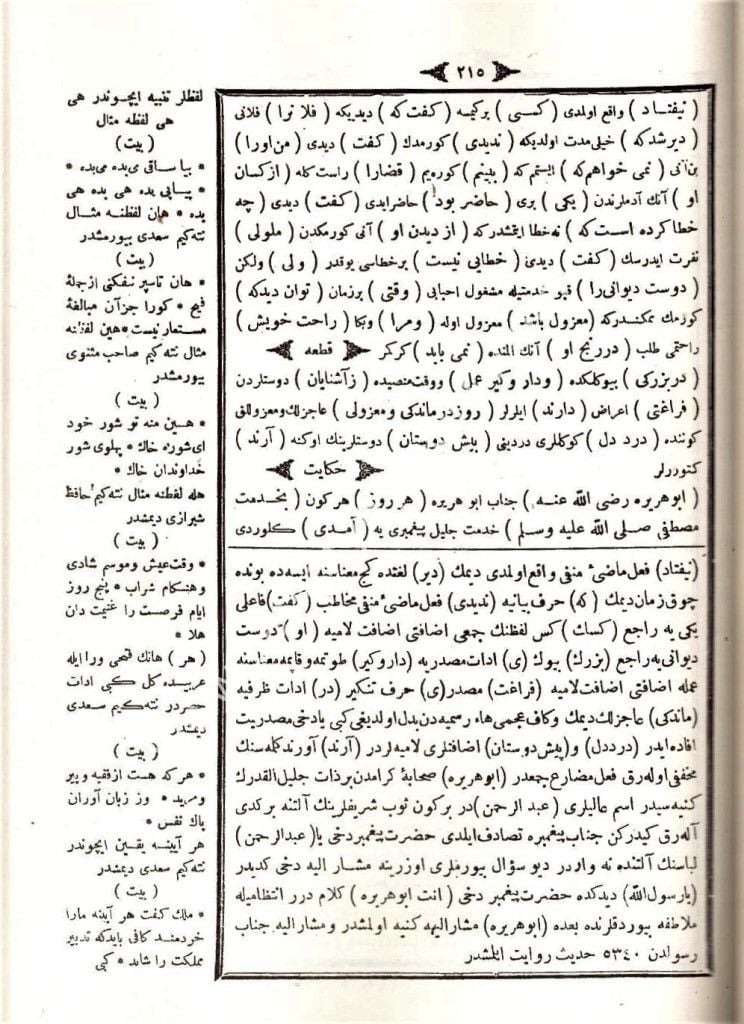 ٢١٥
( نیفتاد ) واقع اولمدی ( کسی ) برکیمسه ( کفت که ) دیدیکه ( فلانرا ) فلانی
( دیرشدکه ) خیلی مدت اولدیکه ( ندیدی ) کورمدك ( کفت ) دیدی ( من اورا )
بن آنی ( نمی خواهم که ) ایستمم که ( بینم ) کوره‌یم ( قضارا ) راست کله ( ازکسان
او ) آنك آدملرندن ( یکی ) بری ( حاضر بود ) حاضرایدی ( کفت ) دیدی ( چه
خطا کرده است که ) نه خطا ایتمشدرکه ( از دیدن او ) آنی کورمکدن ( ملولی )
نفرت ایدرسك ( کفت ) دیدی ( خطایی نیست ) برخطاسی یوقدر ( ولی ) ولکن
( دوست دیوانی را ) قپو خدمتیله مشغول احبابی ( وقتی ) برزمان ( توان دیدکه )
کورمك ممکندرکه ( معزول باشد ) معزول اوله ( ومرا ) وبکا ( راحت خویش )
راحتمی طلب ( دررنج او ) آنك المنده ( نمی باید ) کرکمز قطعه
( دربزرکی ) بیوکلکده ( ودار وکیر عمل ) ووقت منصبده ( زآشنایان ) دوستلردن
( فراغتی ) اعراض ( دارند ) ایلرلر ( روز درماندکی ومعزولی ) عاجزلك ومعزوللق
کوننده ( درد دل ) کوکللری دردینی ( پیش دوستان ) دوستلرینك اوکنه ( آرند )
کتوررلر حکایت
( ابوهریره رضی الله عنه ) جناب ابو هریره ( هر روز ) هرکون ( بخدمت
مصطفی صلی الله علیه وسلم ) خدمت جلیل پیغمبری یه ( آمدی ) کلوردی
(نیفتاد) فعل ماضیٔ منفی واقع اولمدی دیمك (دیر) لغتده کیج معناسنه ایسه‌ده بونده
چوق زمان دیمك (که) حرف بیانیه (ندیدی) فعل ماضیٔ منفی مخاطب (کفت) فاعلی
یکی یه راجع (کسان) کس لفظنك جمعی اضافتی اضافت لامیه ( او ) دوست
دیوانی یه راجع (بزرك) بیوك (ی) ادات مصدریه (داروکیر) طوتمه وقاپمه معناسنه
عمله اضافتی اضافت لامیه (فراغت) مصدر(ی) حرف تنکیر (در) ادات ظرفیه
(ماندکی) عاجزلك دیمك وکاف عجمی هاء رسمیه‌دن بدل اولدیغی کبی یادخی مصدریت
افاده ایدر (درددل) و(پیش دوستان) اضافتلری لامیه لردر (آرند) آورند کله سنك
مخففی اوله‌رق فعل مضارع جمعدر (ابوهریره) صحابهٔ کرامدن برذات جلیل القدرك
کنیه سیدر اسم عالیلری (عبد الرحمن)در برکون ثوب شریفلرینك آلتنه برکدی
آله‌رق کیدرکن جناب پیغمبره تصادف ایلدی حضرت پیغمبردخی یا(عبدالرحمن)
لباسنك آلتنده نه واردر دیو سؤال بیورملری اوزرینه مشار الیه دخی کدیدر
(یارسول الله) دیدکده حضرت پیغمبر دخی ( انت ابوهریره ) کلام درر انتظامیله
ملاطفه بیوردقلرنده بعده (ابوهریره) مشارالیهه کنیه اولمشدر ومشارالیه جناب
رسولدن ٥٣٤٠ حدیث روایت ایلمشدر
لفظلر تنبیه ایچوندر هی
هی لفظه مثال
( بیت )
* بیا ساقی می‌بده می‌بده *
* بیاپی بده هی بده هی
بده * هان لفظنه مثال
نته‌کیم سعدی بیورمشدر
( بیت )
* هان تاسپر نیفکنی ازجملهٔ
فیح * کورا جزآن مبالغهٔ
مستعار نیست * هین لفظنه
مثال نته کیم صاحب مثنوی
بیورمشدر
( بیت )
* هین منه تو شور خود
ای شوره خاك * پهلوی شور
خداوندان خاك *
هله لفظنه مثال نته کیم حافظ
شیرازی دیمشدر
( بیت )
* وقت عیش وموسم شادی
وهنکام شراب * پنج روز
ایام فرصت را غنیمت دان
هلا *
( هر ) هانك فتحی ورا ایله
عربیده کل کبی ادات
در نته‌کیم سعدی
دیمشدر
( بیت )
* هرکه هست ازفقیه وپیر
ومرید * وز زبان آوران
پاك نفس *
هر آیینه یقین ایچوندر
نته‌کیم سعدی دیمشدر
( بیت )
* ملك کفت هر آینه مارا
خردمند کافی بایدکه تدبیر
مملکت را شاید * کبی